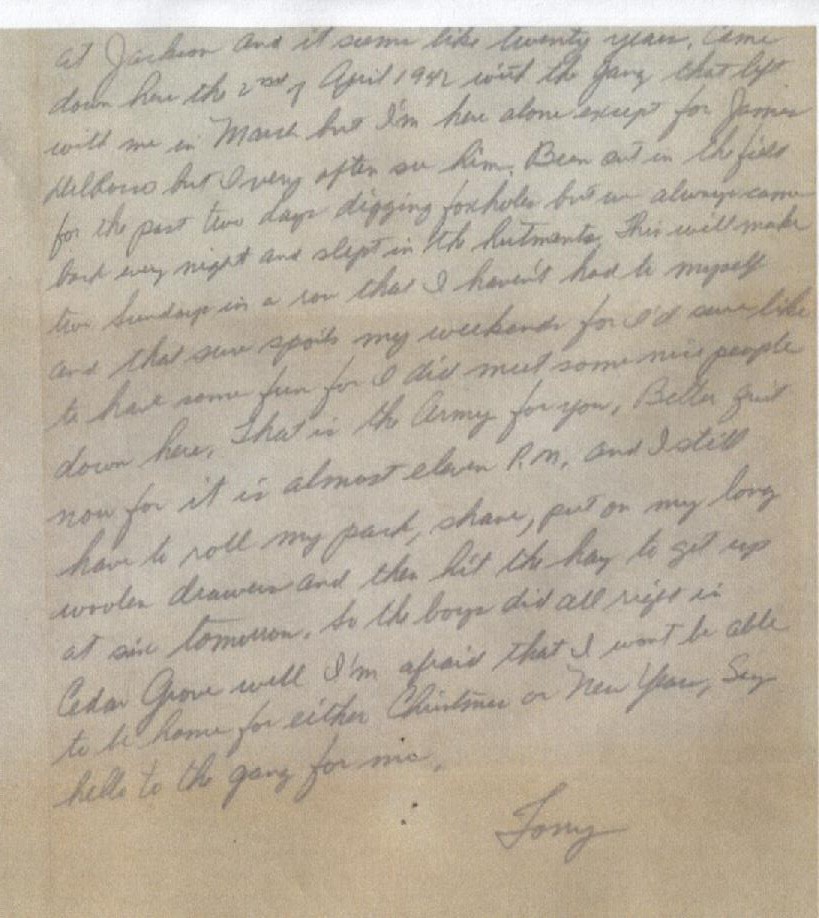 at Jackson and it seems like twenty years. Came
down here the 2nd of April 1942 with the gang that left
with me in March but I'm here alone except for James
DelRosso but I very often see him. Been out in the field
for the past two days digging foxholes but we always came
back every night and slept in the hutments. This will make
two Sundays in a row that I haven't had to myself
and that sure spoils my weekends for I'd sure like
to have some fun for I did meet some nice people
down here. That is the Army for you. Better quit
now for it is almost eleven P.M. and I still
have to roll my pack, shave, put on my long
woolen drawers and then hit the hay to get up
at six tomorrow. So the boys did all right in
Cedar Grove well I'm afraid that I wont be able
to be home for either Christmas or New Years, Say
hello to the gang for me.
Tony